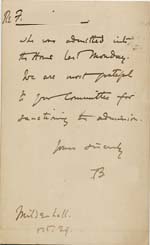 Re F.
who was admitted into
the Home last Monday.
We are most grateful
to your Committee for
sanctioning the admission.
Yours sincerely
B
Mildenhall.
Oct. 29.